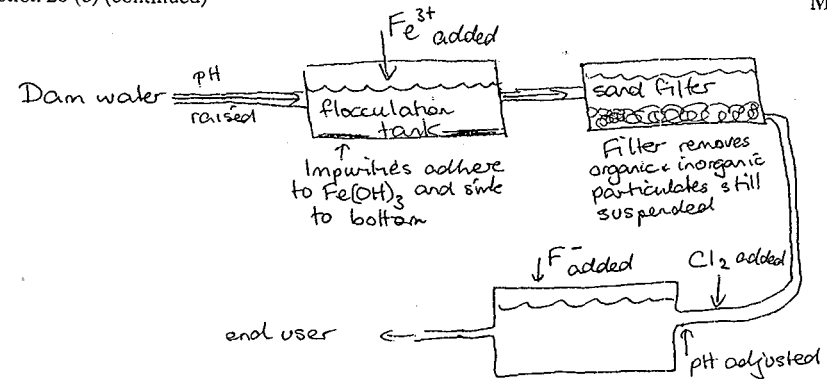 (continued)
M
Fe³⁺ added
Dam water
pH
raised
flocculation
tank
Impurities adhere
to Fe(OH)₃ and sink
to bottom
sand filter
Filter removes
organic & inorganic
particulates still
suspended
Cl₂ added
pH adjusted
F⁻ added
end user